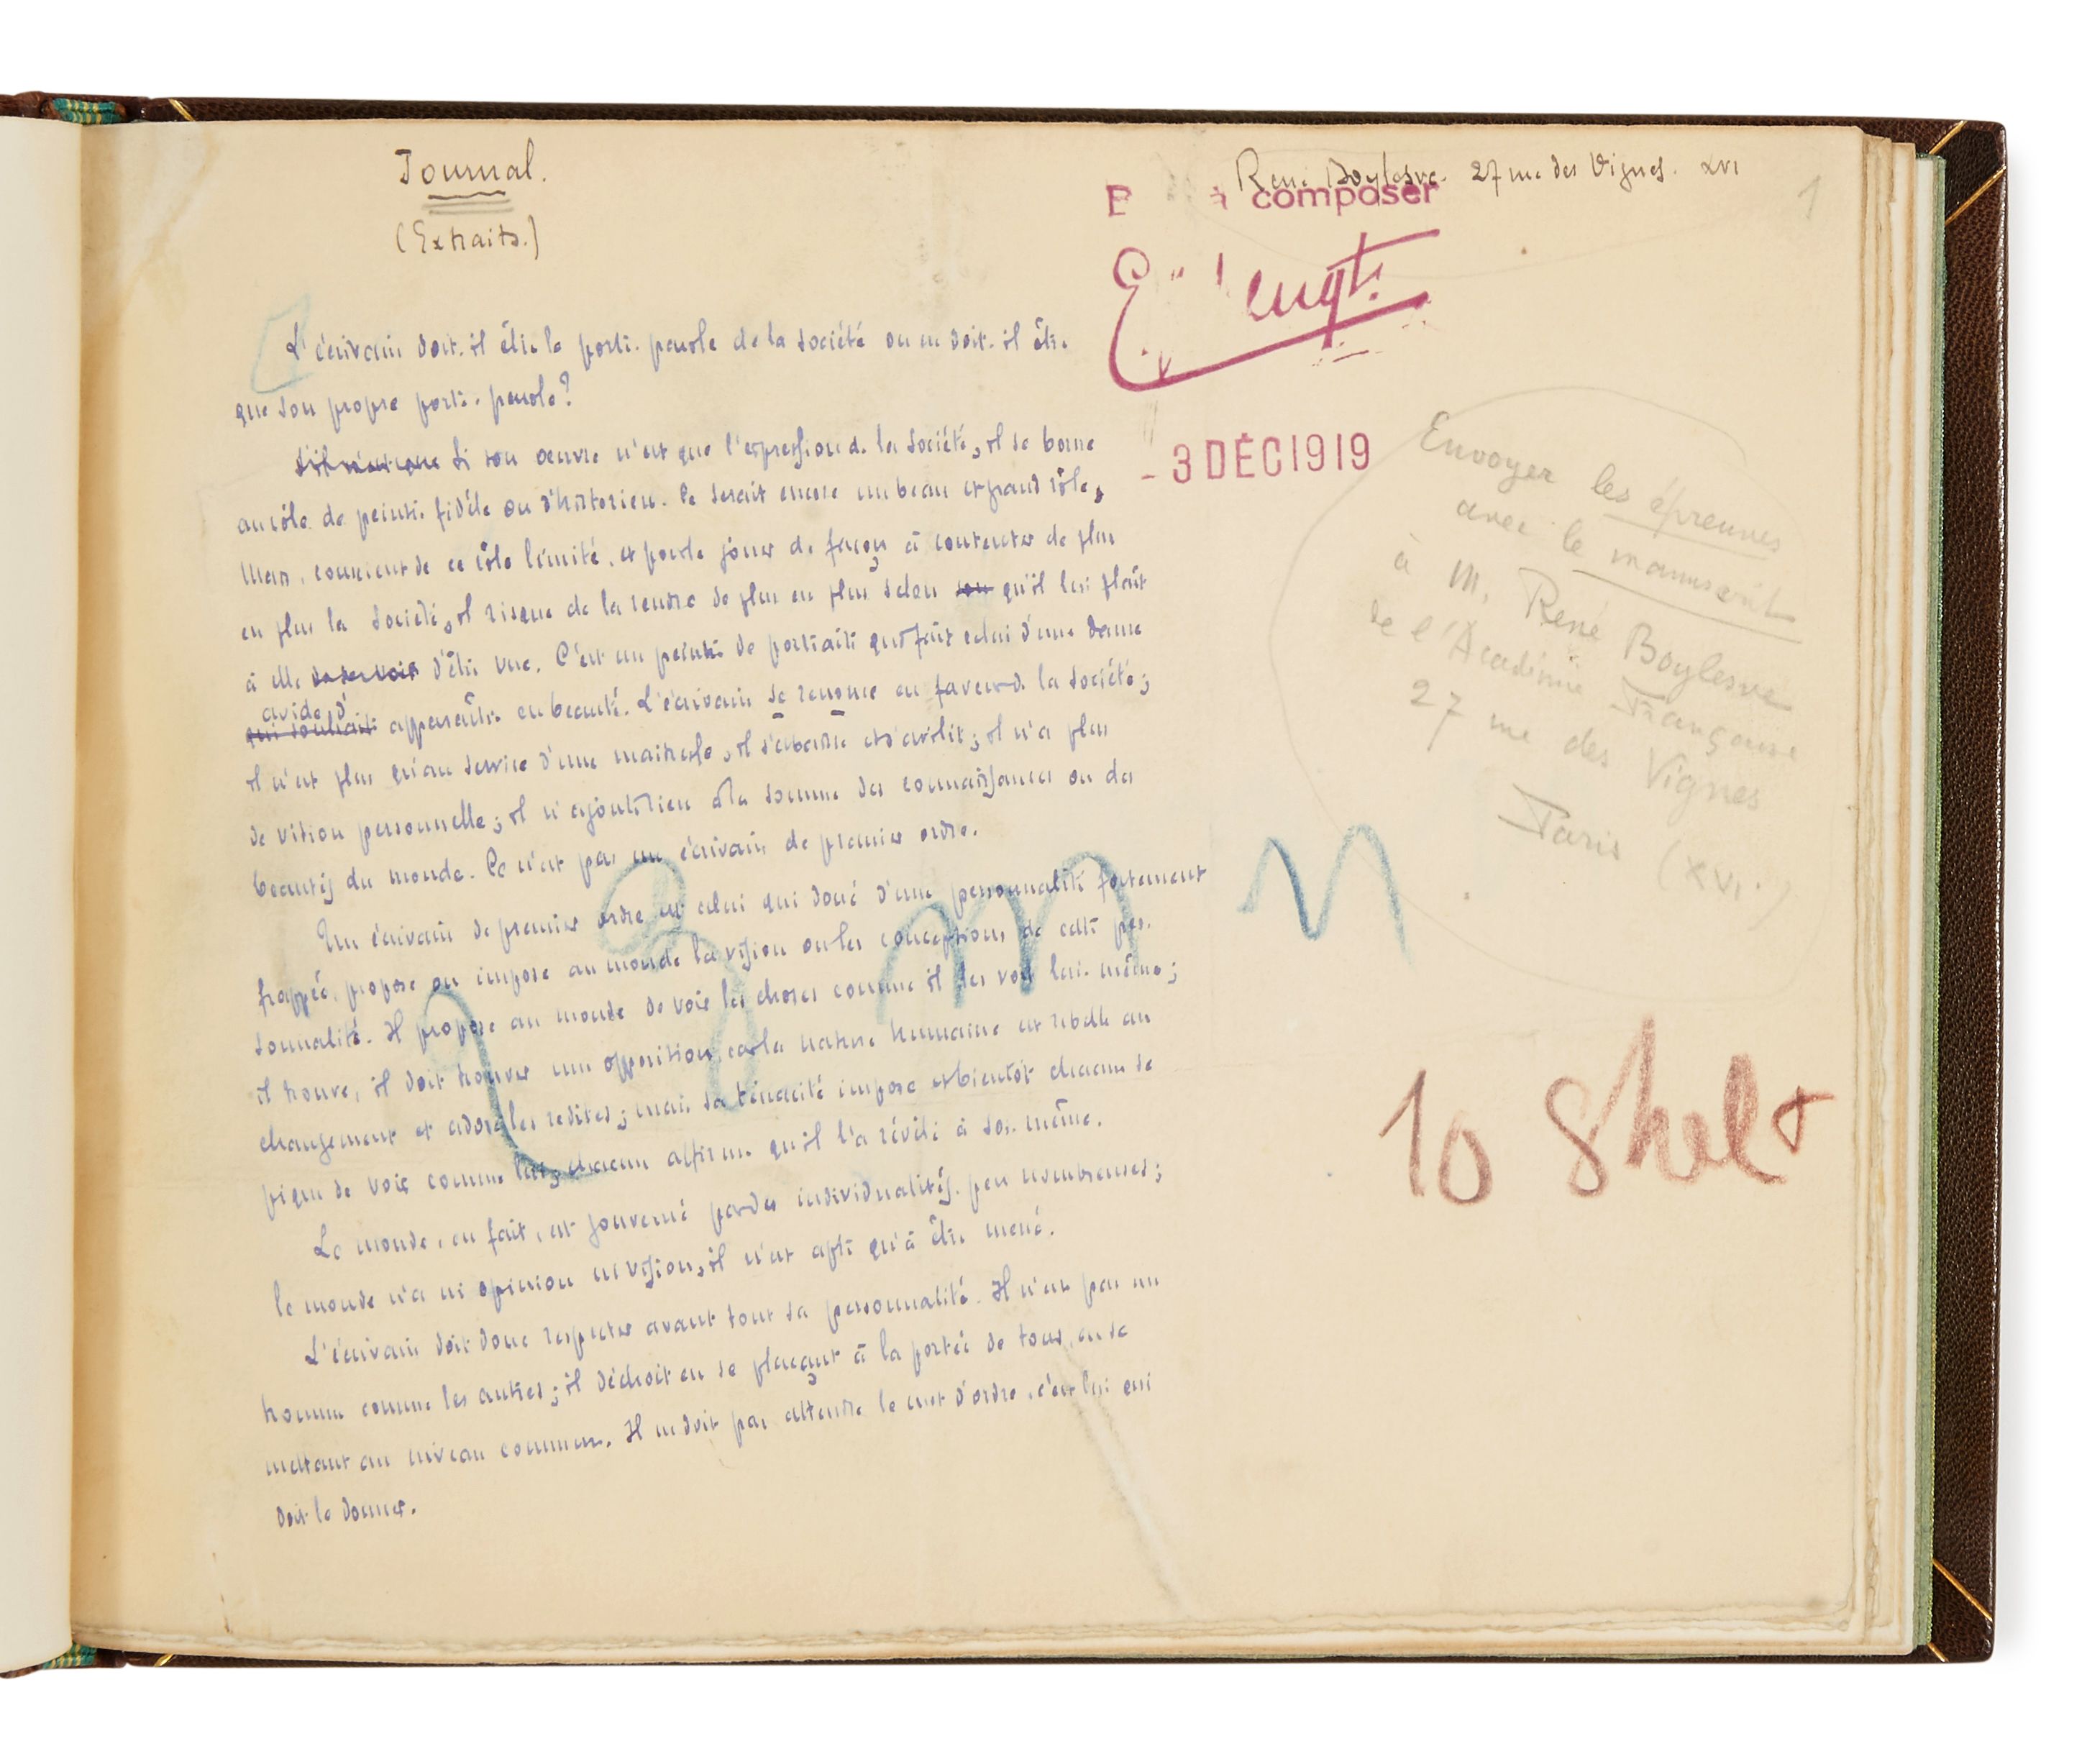 Journal.
(Extraits.)
René Boylesve. 27 rue des Vignes. XVI
1
composer
- 3 DÉC 1919
Envoyer les épreuves
avec le manuscrit
à M. René Boylesve
de l'Académie Française
27 rue des Vignes
Paris (XVIe)
10
L'écrivain doit-il être le porte-parole de la société ou ne doit-il être
que son propre porte-parole?
Si son œuvre n'est que l'expression de la société, il se borne
au rôle de peintre fidèle ou d'historien. Ce serait encore un beau et grand rôle,
Mais, conscient de ce rôle limité, et pour le jouer de façon à contenter de plus
en plus la société, il risque de la rendre de plus en plus selon son qu'il lui plaît
à elle d'être vue. C'est un peintre de portraits qui fait celui d'une dame
avide d'
qui souhait apparaître en beauté. L'écrivain se renonce en faveur de la société;
il n'est plus qu'au service d'une maîtresse, il s'abaisse et s'avilit; il n'a plus
de vision personnelle; il n'ajoute rien à la somme des connaissances ou des
beautés du monde. Ce n'est pas un écrivain de premier ordre.
Un écrivain de premier ordre est celui qui doué d'une personnalité fortement
frappée, propose ou impose au monde la vision ou les conceptions de cette per-
sonnalité. Il propose au monde de voir les choses comme il les voit lui-même;
il trouve, il doit trouver une opposition, car la nature humaine est rebelle au
changement et adore les redites; mais sa ténacité impose et bientôt chacun se
pique de voir comme lui; chacun affirme qu'il l'a révélé à soi-même.
Le monde, en fait, est gouverné par des individualités peu nombreuses;
le monde n'a ni opinion ni vision, il n'est apte qu'à être mené.
L'écrivain doit donc respecter avant tout sa personnalité. Il n'est pas un
homme comme les autres; il déchoit en se plaçant à la portée de tous, en se
mettant au niveau commun. Il ne doit pas attendre le mot d'ordre, c'est lui qui
doit le donner.